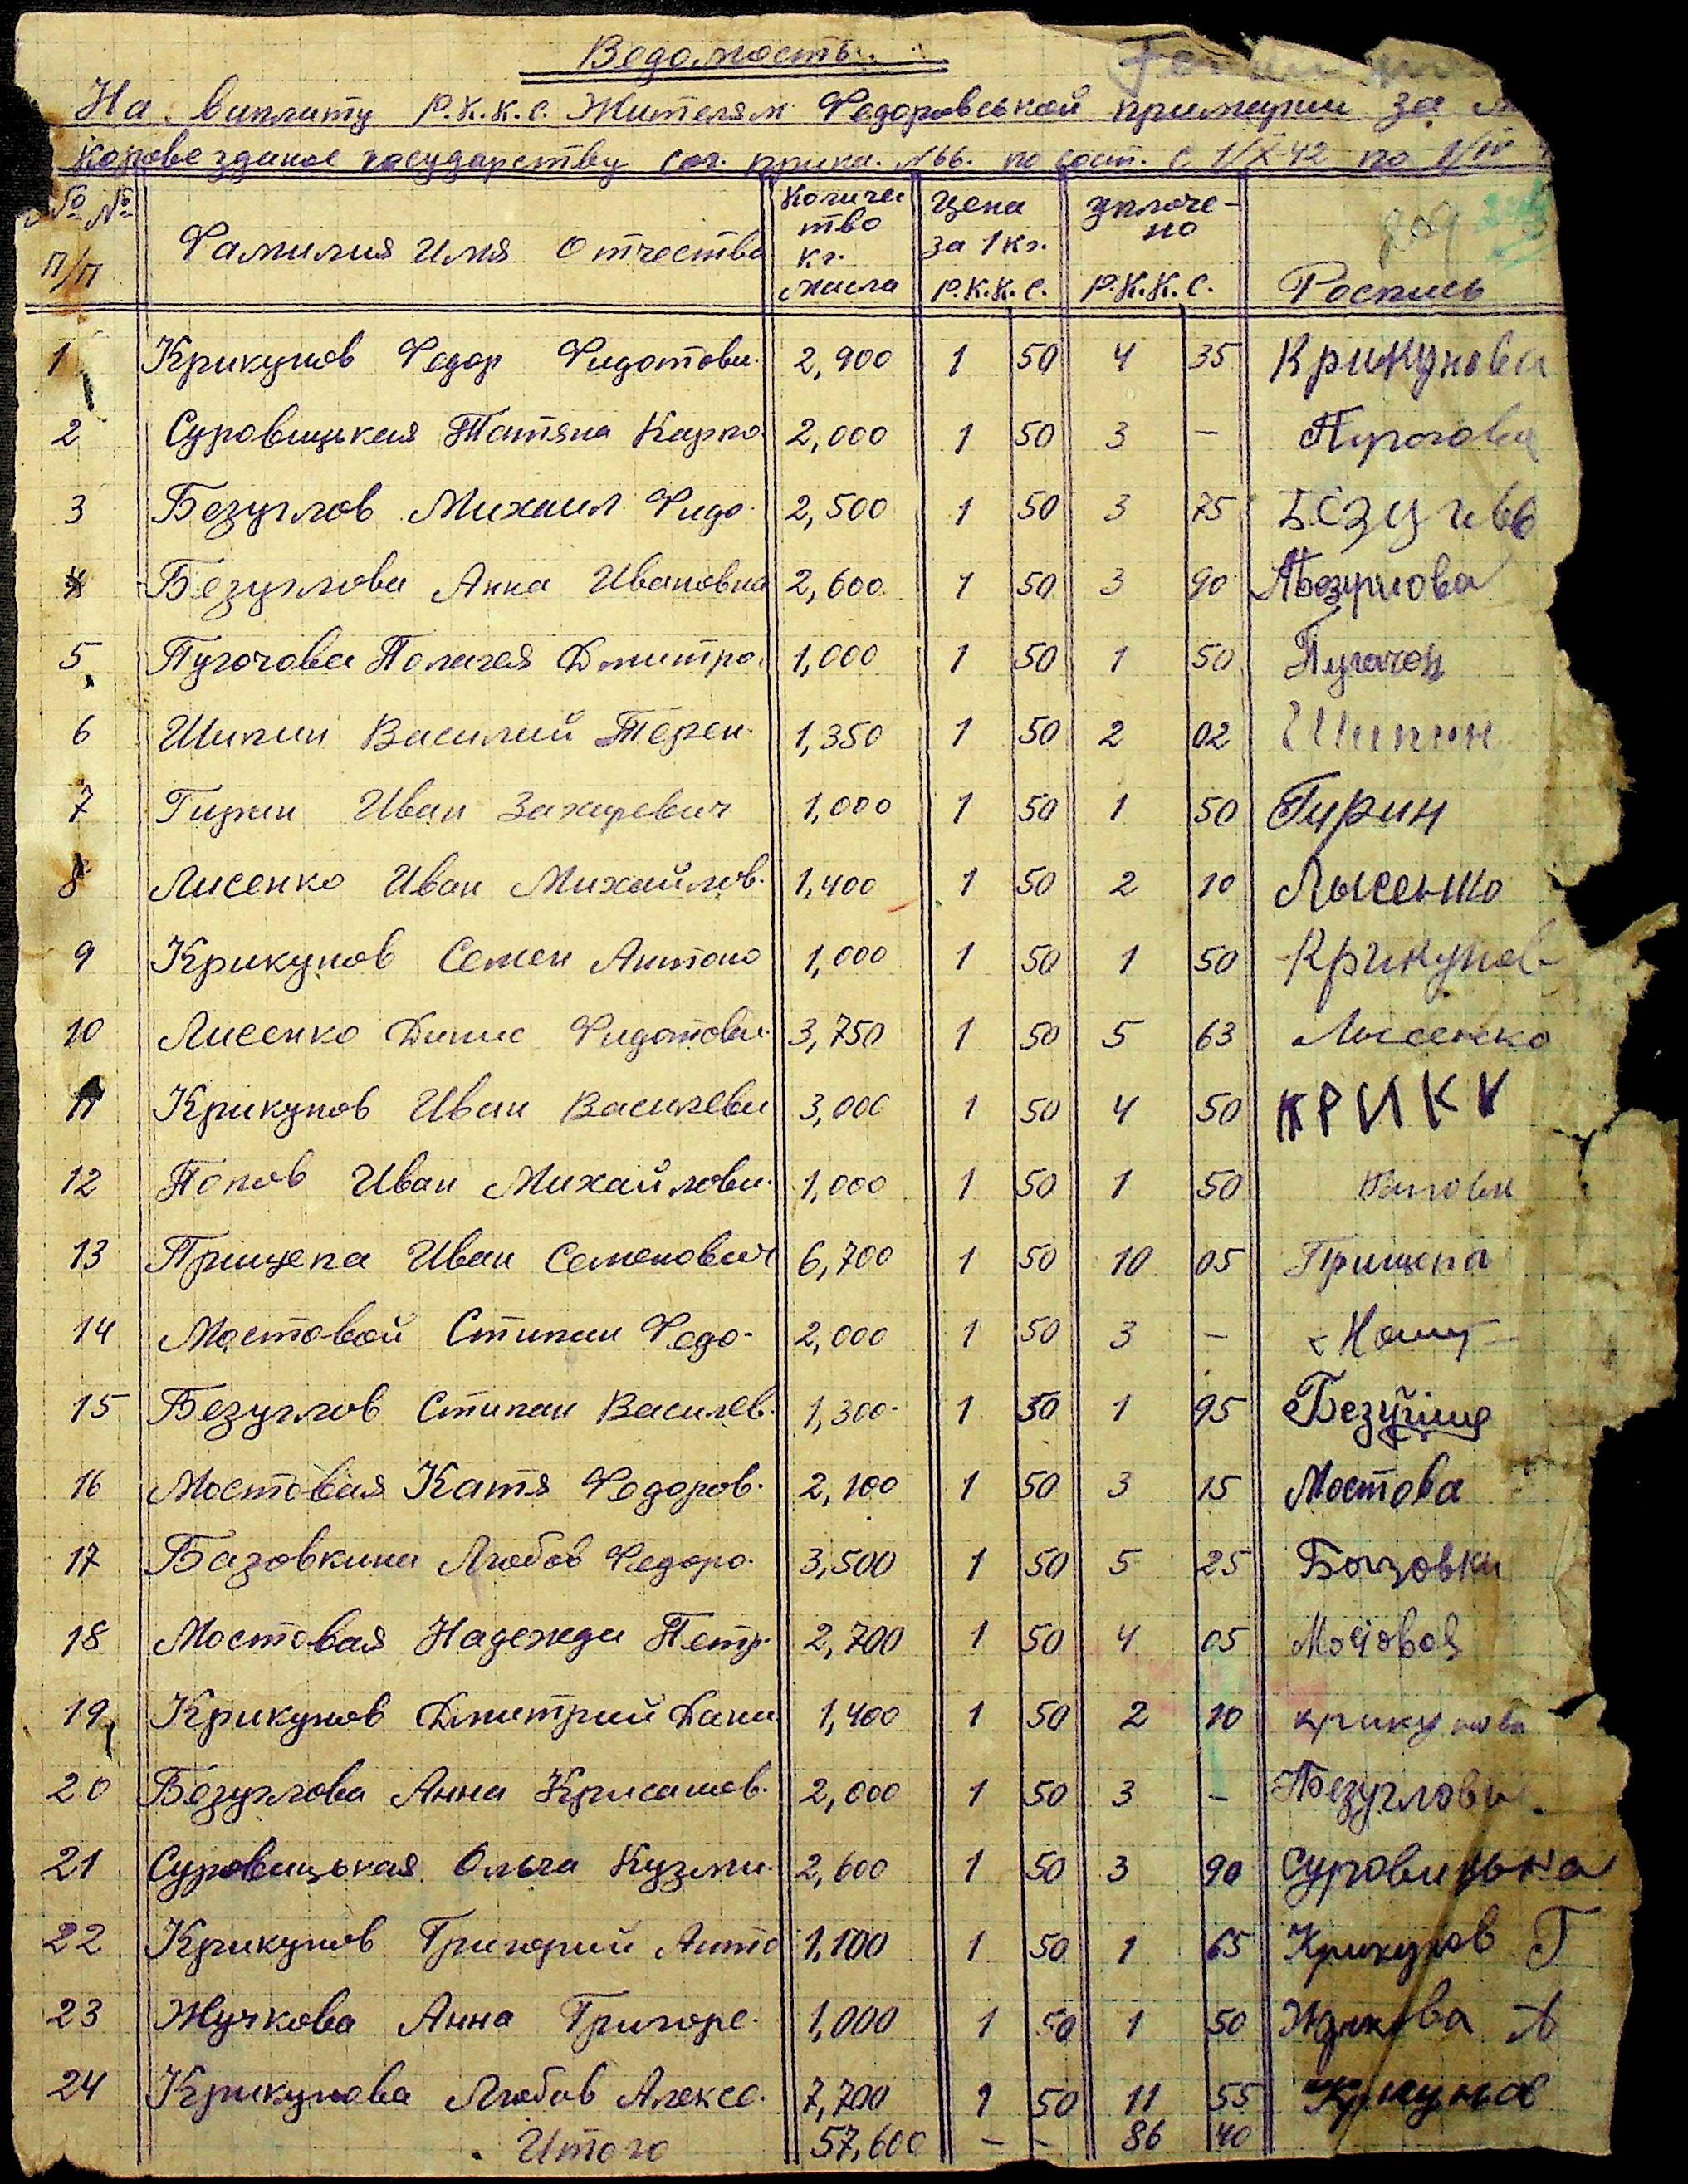 Ведомость
На виплату Р.К.К.С. Жителям Федоровськой примерии за
Коровье зданое государству сог. прика. №66. по сост. с 1/X-42 по 1/IV
№ №
п/п
Фамилия Имя Отчество
Количес
тво
кг.
масла
Цена
за 1 кг.
Р.К.К.С.
Уплоче-
но
Р.К.К.С.
Роспись
1 Крикунов Федор Фидотови. 2,900 1 50 4 35 Крикунова
2 Суровицькая Татяна Карпо. 2,000 1 50 3 –
3 Безуглов Михаил Фидо. 2,500 1 50 3 75
4 Безуглова Анна Ивановна 2,600 1 50 3 90 АБезуглова
5 Пугочова Полагея Дмитро. 1,000 1 50 1 50
6 Шипин Василий Терен. 1,350 1 50 2 02 Шипин
7 Гирин Иван Захаревич 1,000 1 50 1 50 Гирин
8 Лисенко Иван Михайлов. 1,400 1 50 2 10 Лысенко
9 Крикунов Семен Антоно 1,000 1 50 1 50 Крикунов
10 Лисенко Динис Фидотови. 3,750 1 50 5 63 Лысенко
11 Крикунов Иван Василеви 3,000 1 50 4 50 КРИКУ
12 Попов Иван Михайлови. 1,000 1 50 1 50
13 Прищепа Иван Семенович 6,700 1 50 10 05 Прищепа
14 Мостовой Стипан Федо- 2,000 1 50 3 –
15 Безуглов Стипан Василев. 1,300 1 50 1 95
16 Мостовая Катя Федоров. 2,100 1 50 3 15 Мостова
17 Базовкина Любов Федоро. 3,500 1 50 5 25 Базовки
18 Мостовая Надежда Петр. 2,700 1 50 4 05
19 Крикунов Дмитрий Дани. 1,400 1 50 2 10 крикунова
20 Безуглова Анна Крисанов. 2,000 1 50 3 – Безуглова
21 Суровицькая Ольга Кузми. 2,600 1 50 3 90 Суровицька
22 Крикунов Григорий Анто 1,100 1 50 1 65 Крикунов Г
23 Жучкова Анна Григоре. 1,000 1 50 1 50 Жучкова А
24 Крикунова Любов Алексе. 7,700 1 50 11 55
Итого 57,600 – – 86 40